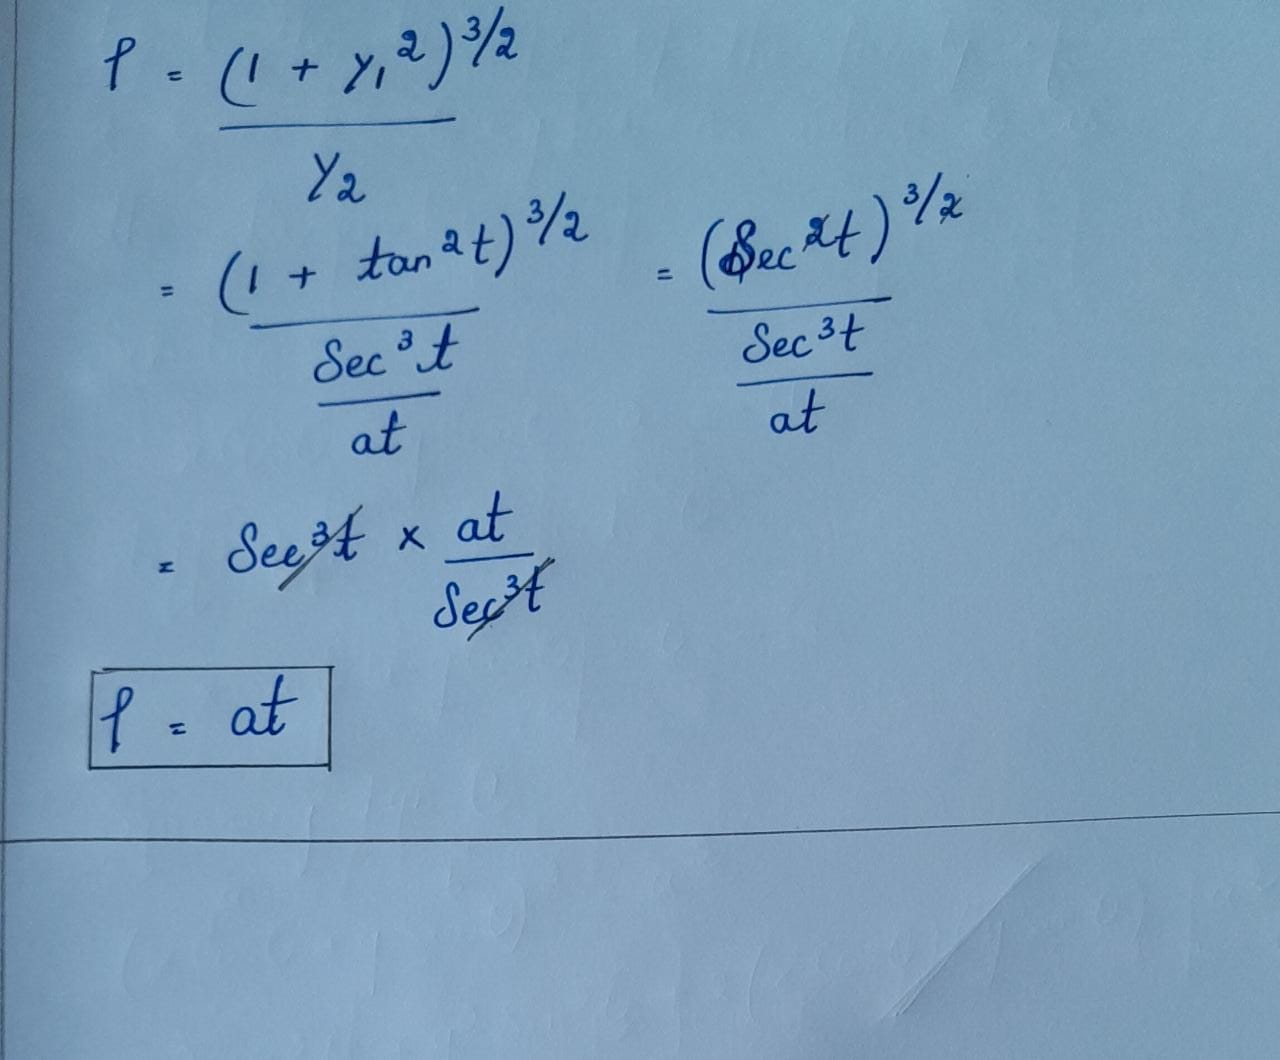 ρ = (1 + y₁²)^3/2 / y₂
= (1 + tan²t)^3/2 / (Sec³t / at) = (Sec²t)^3/2 / (Sec³t / at)
= Sec³t × at / Sec³t
ρ = at